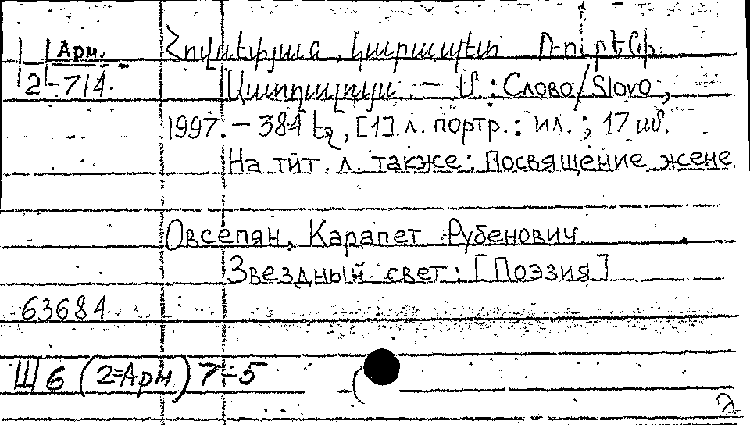 Арм.
2-714.
Հովսեփյան, Կարապետ Ռուբենի
Աստղալույս. — Մ : Слово/Slovo,
1997. — 384 էջ, [1] л. портр. : ил. ; 17 սմ.
На тит. л. также: Посвящение жене
Овсепян, Карапет Рубенович
Звездный свет : [Поэзия]
63684
Ш6(2=Арм)7-5
2